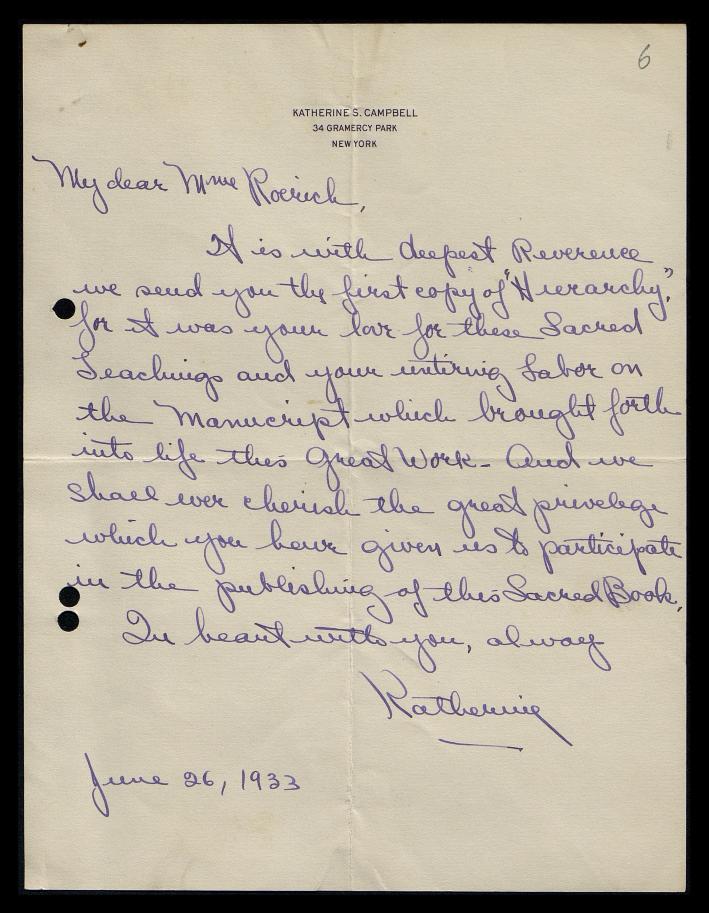 6
KATHERINE S. CAMPBELL
34 GRAMERCY PARK
NEW YORK
My dear Mme Roerich,
It is with deepest Reverence
we send you the first copy of "Hierarchy",
for it was your love for these Sacred
Teachings and your untiring Labor on
the Manucript which brought forth
into life this Great Work - And we
shall ever cherish the great privelege
which you have given us to participate
in the publishing of this Sacred Book.
In heart with you, alway
Katherine
June 26, 1933